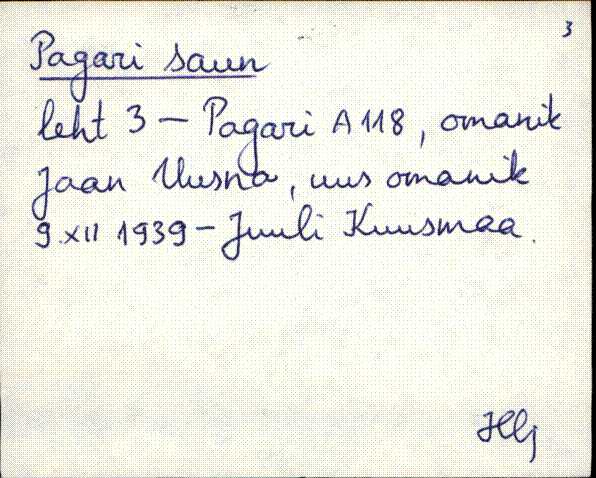 3
Pagari saun
leht 3 – Pagari A 118, omanik
Jaan Uusna, uus omanik
9.XII 1939 – Juuli Kuusmaa.